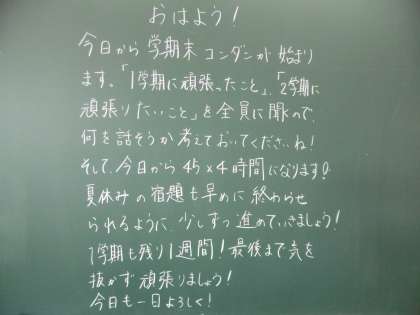 おはよう!
今日から学期末コンダンが始まり
ます。「1学期に頑張ったこと」、「2学期に
頑張りたいこと」を全員に聞くので、
何を話そうか考えておいてくださいね!
そして、今日から45×4時間になります!
夏休みの宿題も早めに終わらせ
られるように、少しずつ進めていきましょう!
1学期も残り1週間!最後まで気を
抜かず頑張りましょう!
今日も一日よろしく!